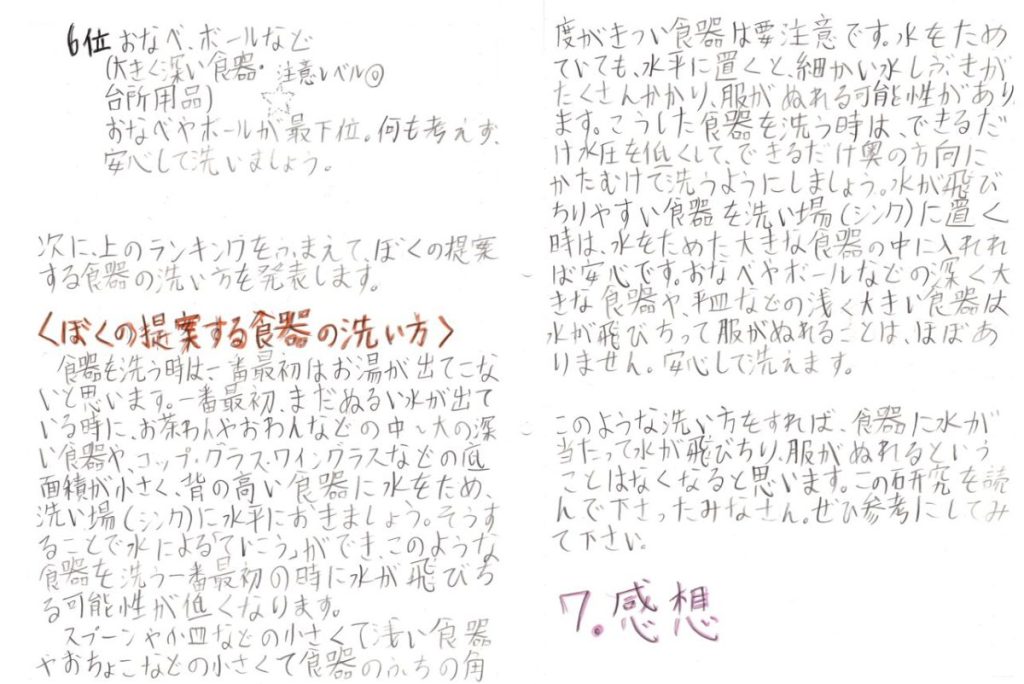 6位 おなべ、ボールなど
(大きく深い食器・ 注意レベル◎
台所用品)
おなべやボールが最下位。何も考えず、
安心して洗いましょう。
次に、上のランキングをふまえて、ぼくの提案
する食器の洗い方を発表します。
〈ぼくの提案する食器の洗い方〉
食器を洗う時は、一番最初はお湯が出てこな
いと思います。一番最初、まだぬるい水が出て
いる時に、お茶わんやおわんなどの中~大の深
い食器や、コップ・グラス・ワイングラスなどの底
面積が小さく、背の高い食器に水をため、
洗い場(シンク)に水平におきましょう。そうす
ることで水による「ていこう」ができ、このような
食器を洗う一番最初の時に水が飛びち
る可能性が低くなります。
スプーンや小皿などの小さくて浅い食器
やおちょこなどの小さくて食器のふちの角
度がきつい食器は要注意です。水をため
ていても、水平に置くと、細かい水しぶきが
たくさんかかり、服がぬれる可能性があり
ます。こうした食器を洗う時は、できるだ
け水圧を低くして、できるだけ奥の方向に
かたむけて洗うようにしましょう。水が飛び
ちりやすい食器を洗い場(シンク)に置く
時は、水をためた大きな食器の中に入れれ
ば安心です。おなべやボールなどの深く大
きな食器や、平皿などの浅く大きい食器は
水が飛びちって服がぬれることは、ほぼあ
りません。安心して洗えます。
このような洗い方をすれば、食器に水が
当たって水が飛びちり、服がぬれるという
ことはなくなると思います。この研究を読
んで下さったみなさん。ぜひ参考にしてみ
て下さい。
7.感想